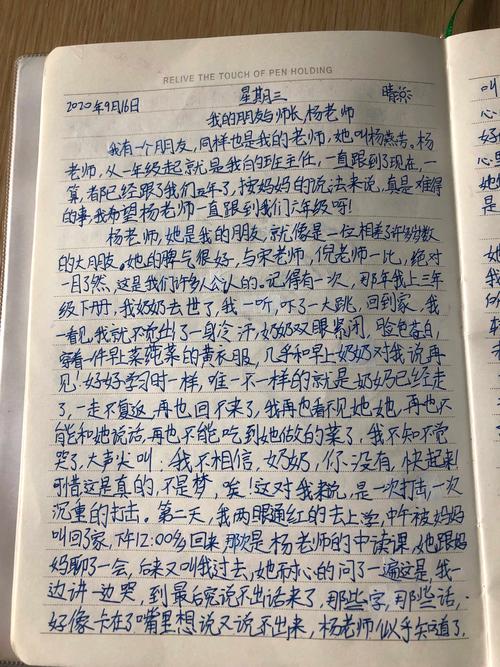 RELIVE THE TOUCH OF PEN HOLDING
2020年9月16日 星期三 晴
我的朋友与师长,杨老师
我有一个朋友,同样也是我的老师,她叫杨燕芳,杨
老师,从一年级起就是我的班主任,一直跟到了现在,一
算,都已经跟了我们五年了,按妈妈的说法来说,真是难得
的事,我希望杨老师一直跟到我们六年级呀!
杨老师,她是我的朋友,就像是一位相差了许多岁数
的大朋友。她的脾气很好,与宋老师,倪老师一比,绝对
一目了然,这是我们许多人公认的。记得有一次,那年我上三年
级下册,我奶奶去世了,我一听,吓了一大跳,回到家,我
一看见,我就不觉出了一身冷汗,奶奶双眼紧闭,脸色苍白,
穿着一件早上买菜的黄衣服,几乎和早上奶奶对我说再
见!好好学习时一样,唯一不一样的就是奶奶已经走
了,一走不复返,再也回不来了,我再也看不见她她,再也不
能和她说话,再也不能吃到她做的菜了,我不知不觉
哭了,大声尖叫:我不相信,奶奶,你没有,快起来!
可惜这是真的,不是梦,唉!这对我来说,是一次打击,一次
沉重的打击。第二天,我两眼通红的去上学,中午被妈妈
叫回了家,下午12:00多回来,那次是杨老师的中读课,她跟妈
妈聊了一会,后来又叫我过去,她耐心的问了一遍这是,我一
边讲一边哭,到最后竟说不出话来了,那些字,那些话,
好像卡在了嘴里想说又说不出来,杨老师似乎知道了,
叫
心
好
心
是